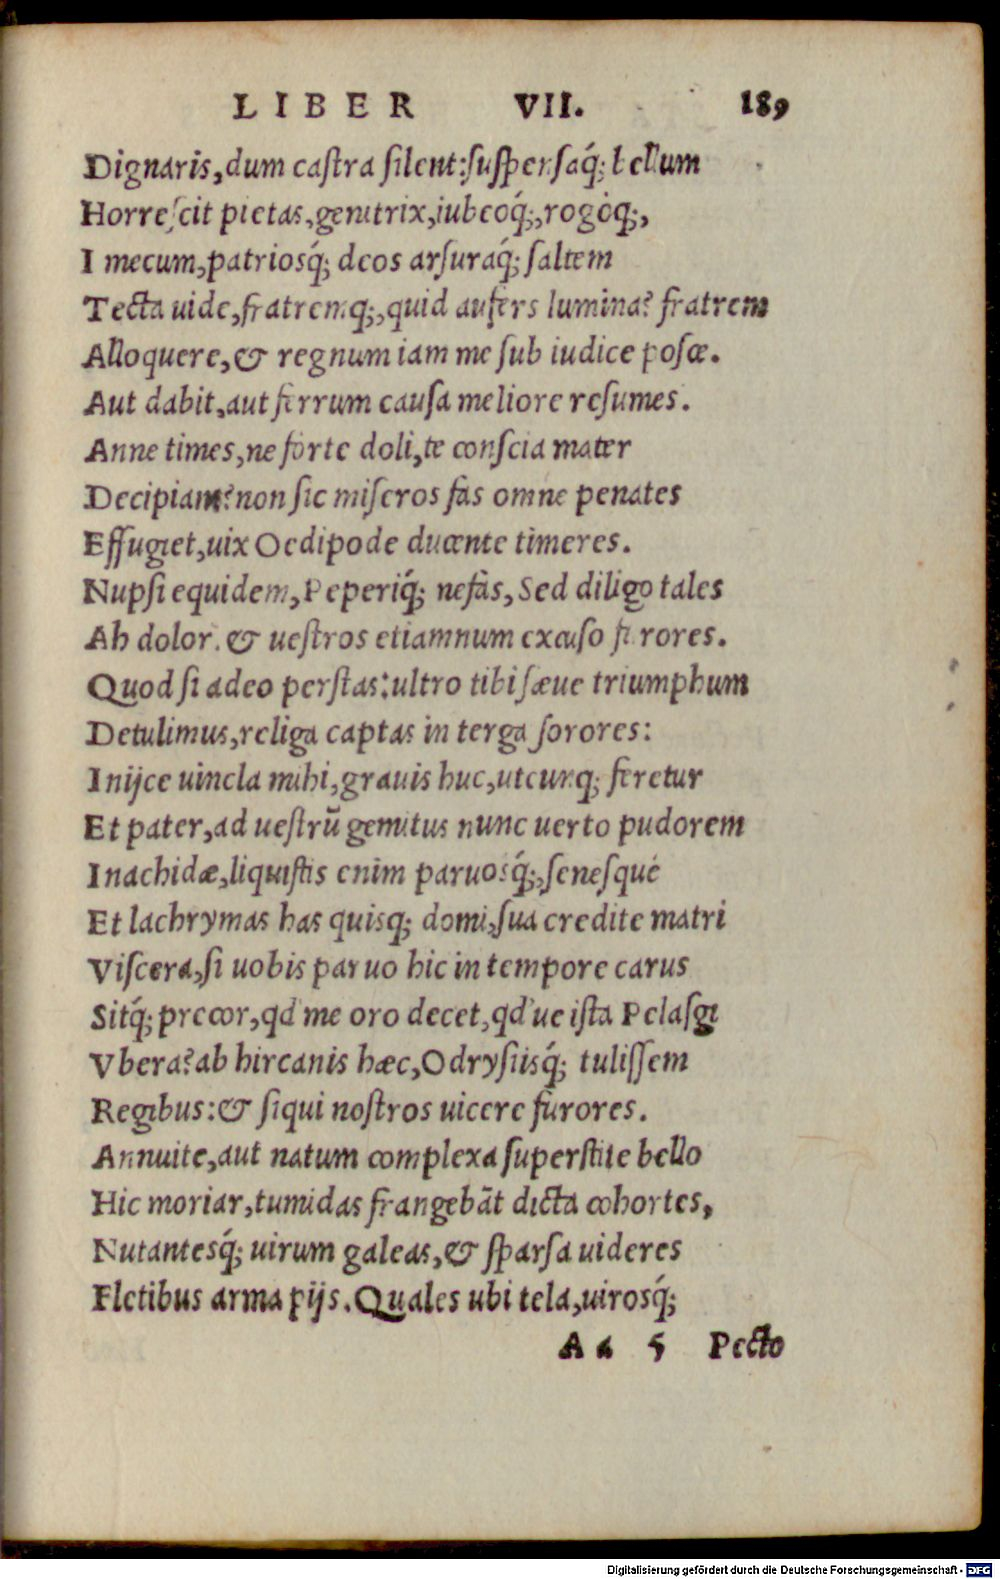 LIBER VII. 189
Dignaris,dum castra silent:suspensaq́; bellum
Horrescit pietas,genitrix,iubeoq́;,rogoq́;,
I mecum,patriosq́; deos arsuraq́; saltem
Tecta uide,fratremq;,quid aufers lumina? fratrem
Alloquere,& regnum iam me sub iudice posce.
Aut dabit,aut ferrum causa meliore resumes.
Anne times,ne forte doli,te conscia mater
Decipiam?non sic miseros fas omne penates
Effugiet,uix Oedipode ducente timeres.
Nupsi equidem,Peperiq́; nefas,Sed diligo tales
Ah dolor.& uestros etiamnum excuso furores.
Quod si adeo perstas:ultro tibi sæue triumphum
Detulimus,religa captas in terga sorores:
Inijce uincla mihi,grauis huc,utcunq; feretur
Et pater,ad uestrū gemitus nunc uerto pudorem
Inachidæ,liquistis enim paruosq́;,senesque
Et lachrymas has quisq; domi,sua credite matri
Viscera,si uobis paruo hic in tempore carus
Sitq́; precor,qd me oro decet,qd ue ista Pelasgi
Vbera?ab hircanis hæc,Odrysiisq́; tulissem
Regibus:& siqui nostros uicere furores.
Annuite,aut natum complexa superstite bello
Hic moriar,tumidas frangebāt dicta cohortes,
Nutantesq́; uirum galeas,& sparsa uideres
Fletibus arma pijs.Quales ubi tela,uirosq́;
Aa 5 Pecto
Digitalisierung gefördert durch die Deutsche Forschungsgemeinschaft - DFG